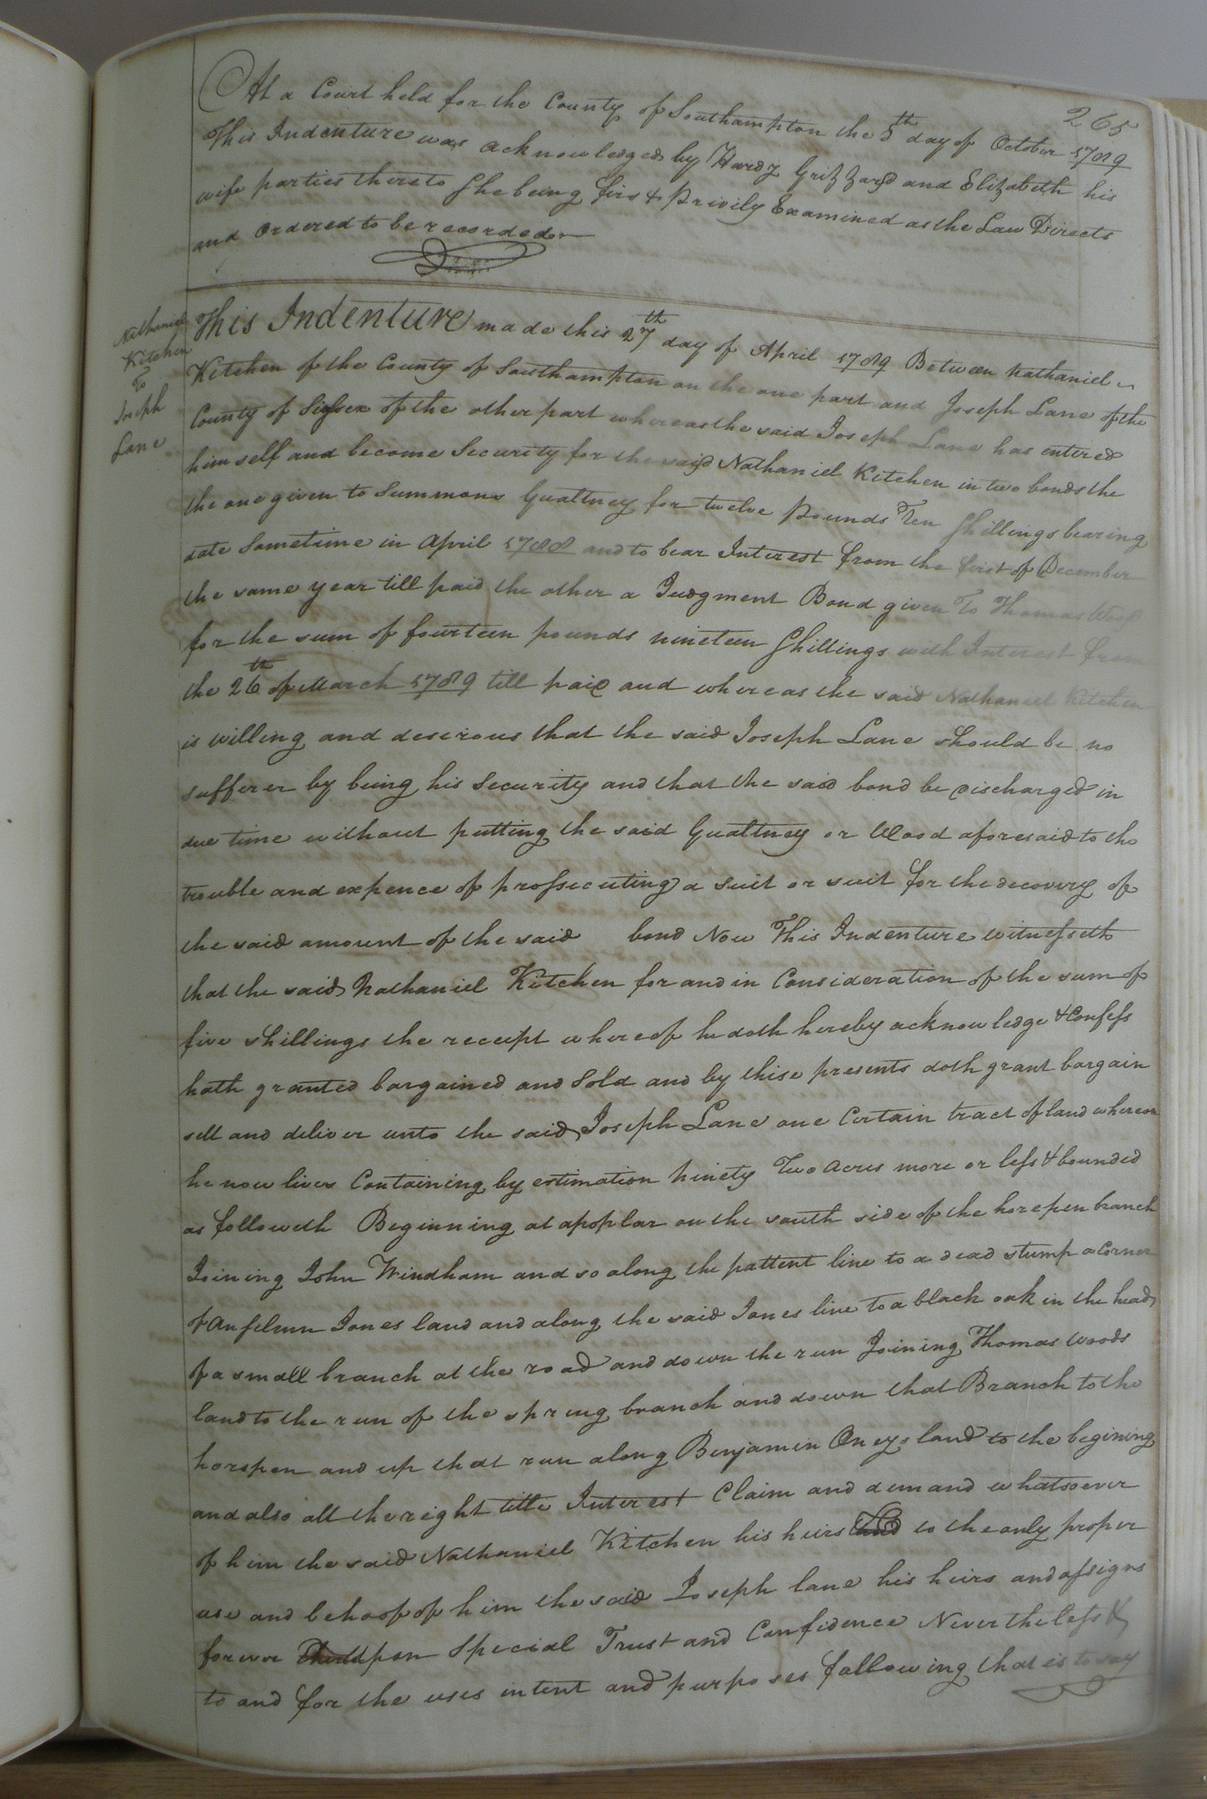 265
At a Court held for the County of Southampton the 8th day of October 1789
This Indenture was acknowledged by Hardy Grizzard and Elizabeth his
wife parties thereto She being first Privily Examined as the Law Directs
and Ordered to be recorded
Nathaniel
Kitchen
To
Joseph
Lane
This Indenture made this 27th day of April 1789 Between Nathaniel
Kitchen of the County of Southampton on the one part and Joseph Lane of the
County of Sussex of the other part whereas the said Joseph Lane has entered
him self and become Security for the said Nathaniel Kitchen in two bonds the
the one given to Summons Gualtney for twelve Pounds Ten Shillings bearing
date Sometime in April 1788 and to bear Interest from the first of December
the same year till paid the other a Judgment Bond given To Thomas Wood
for the sum of fourteen pounds nineteen Shillings with Interest from
the 26th of March 1789 till paid and whereas the said Nathaniel Kitchen
is willing and deserous that the said Joseph Lane should be no
sufferer by being his Security and that the said bond be discharged in
due time without putting the said Gualtney or Wood aforesaid to the
trouble and expence of prossecuting a suit or suit for the decovery of
the said amount of the said bond Now This Indenture witnesseth
that the said Nathaniel Kitchen for and in Consideration of the sum of
five shillings the receipt whereof he doth hereby acknowledge & Confess
hath granted bargained and Sold and by thise presents doth grant bargain
sell and deliver unto the said Joseph Lane one Certain tract of land whereon
he now lives Containing by estimation Ninety Two Acres more or less & bounded
as followeth Beginning at apoplar on the south side of the horepen branch
Joining John Windham and so along the pattent line to a dead stump a Corner
of Anselmn Jones land and along the said Jones line to a black oak in the head
of a small branch at the road and down the run Joining Thomas Woods
land to the run of the spring branch and down that Branch to the
horspen and up that run along Benjamin Oneys land to the begining
and also all the right title Interest Claim and demand whatsoever
of him the said Nathaniel Kitchen his heirs to the only proper
use and behoof of him the said Joseph lane his heirs and assigns
forever upon Special Trust and Confidence Nevertheless &
to and for the uses intent and purposes following that is to say